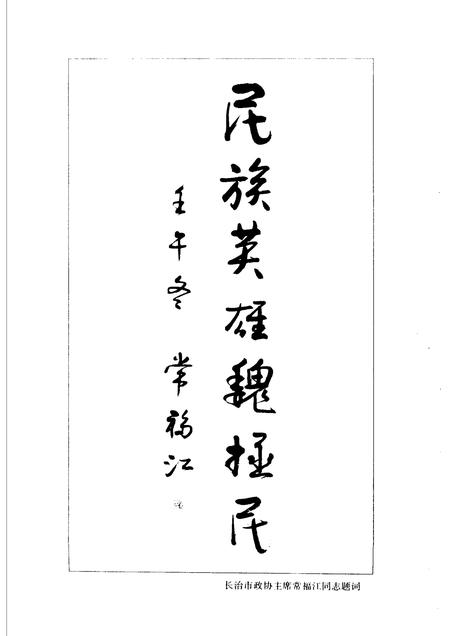 民族英雄魏拯民
壬午冬 常福江
长治市政协主席常福江同志题词